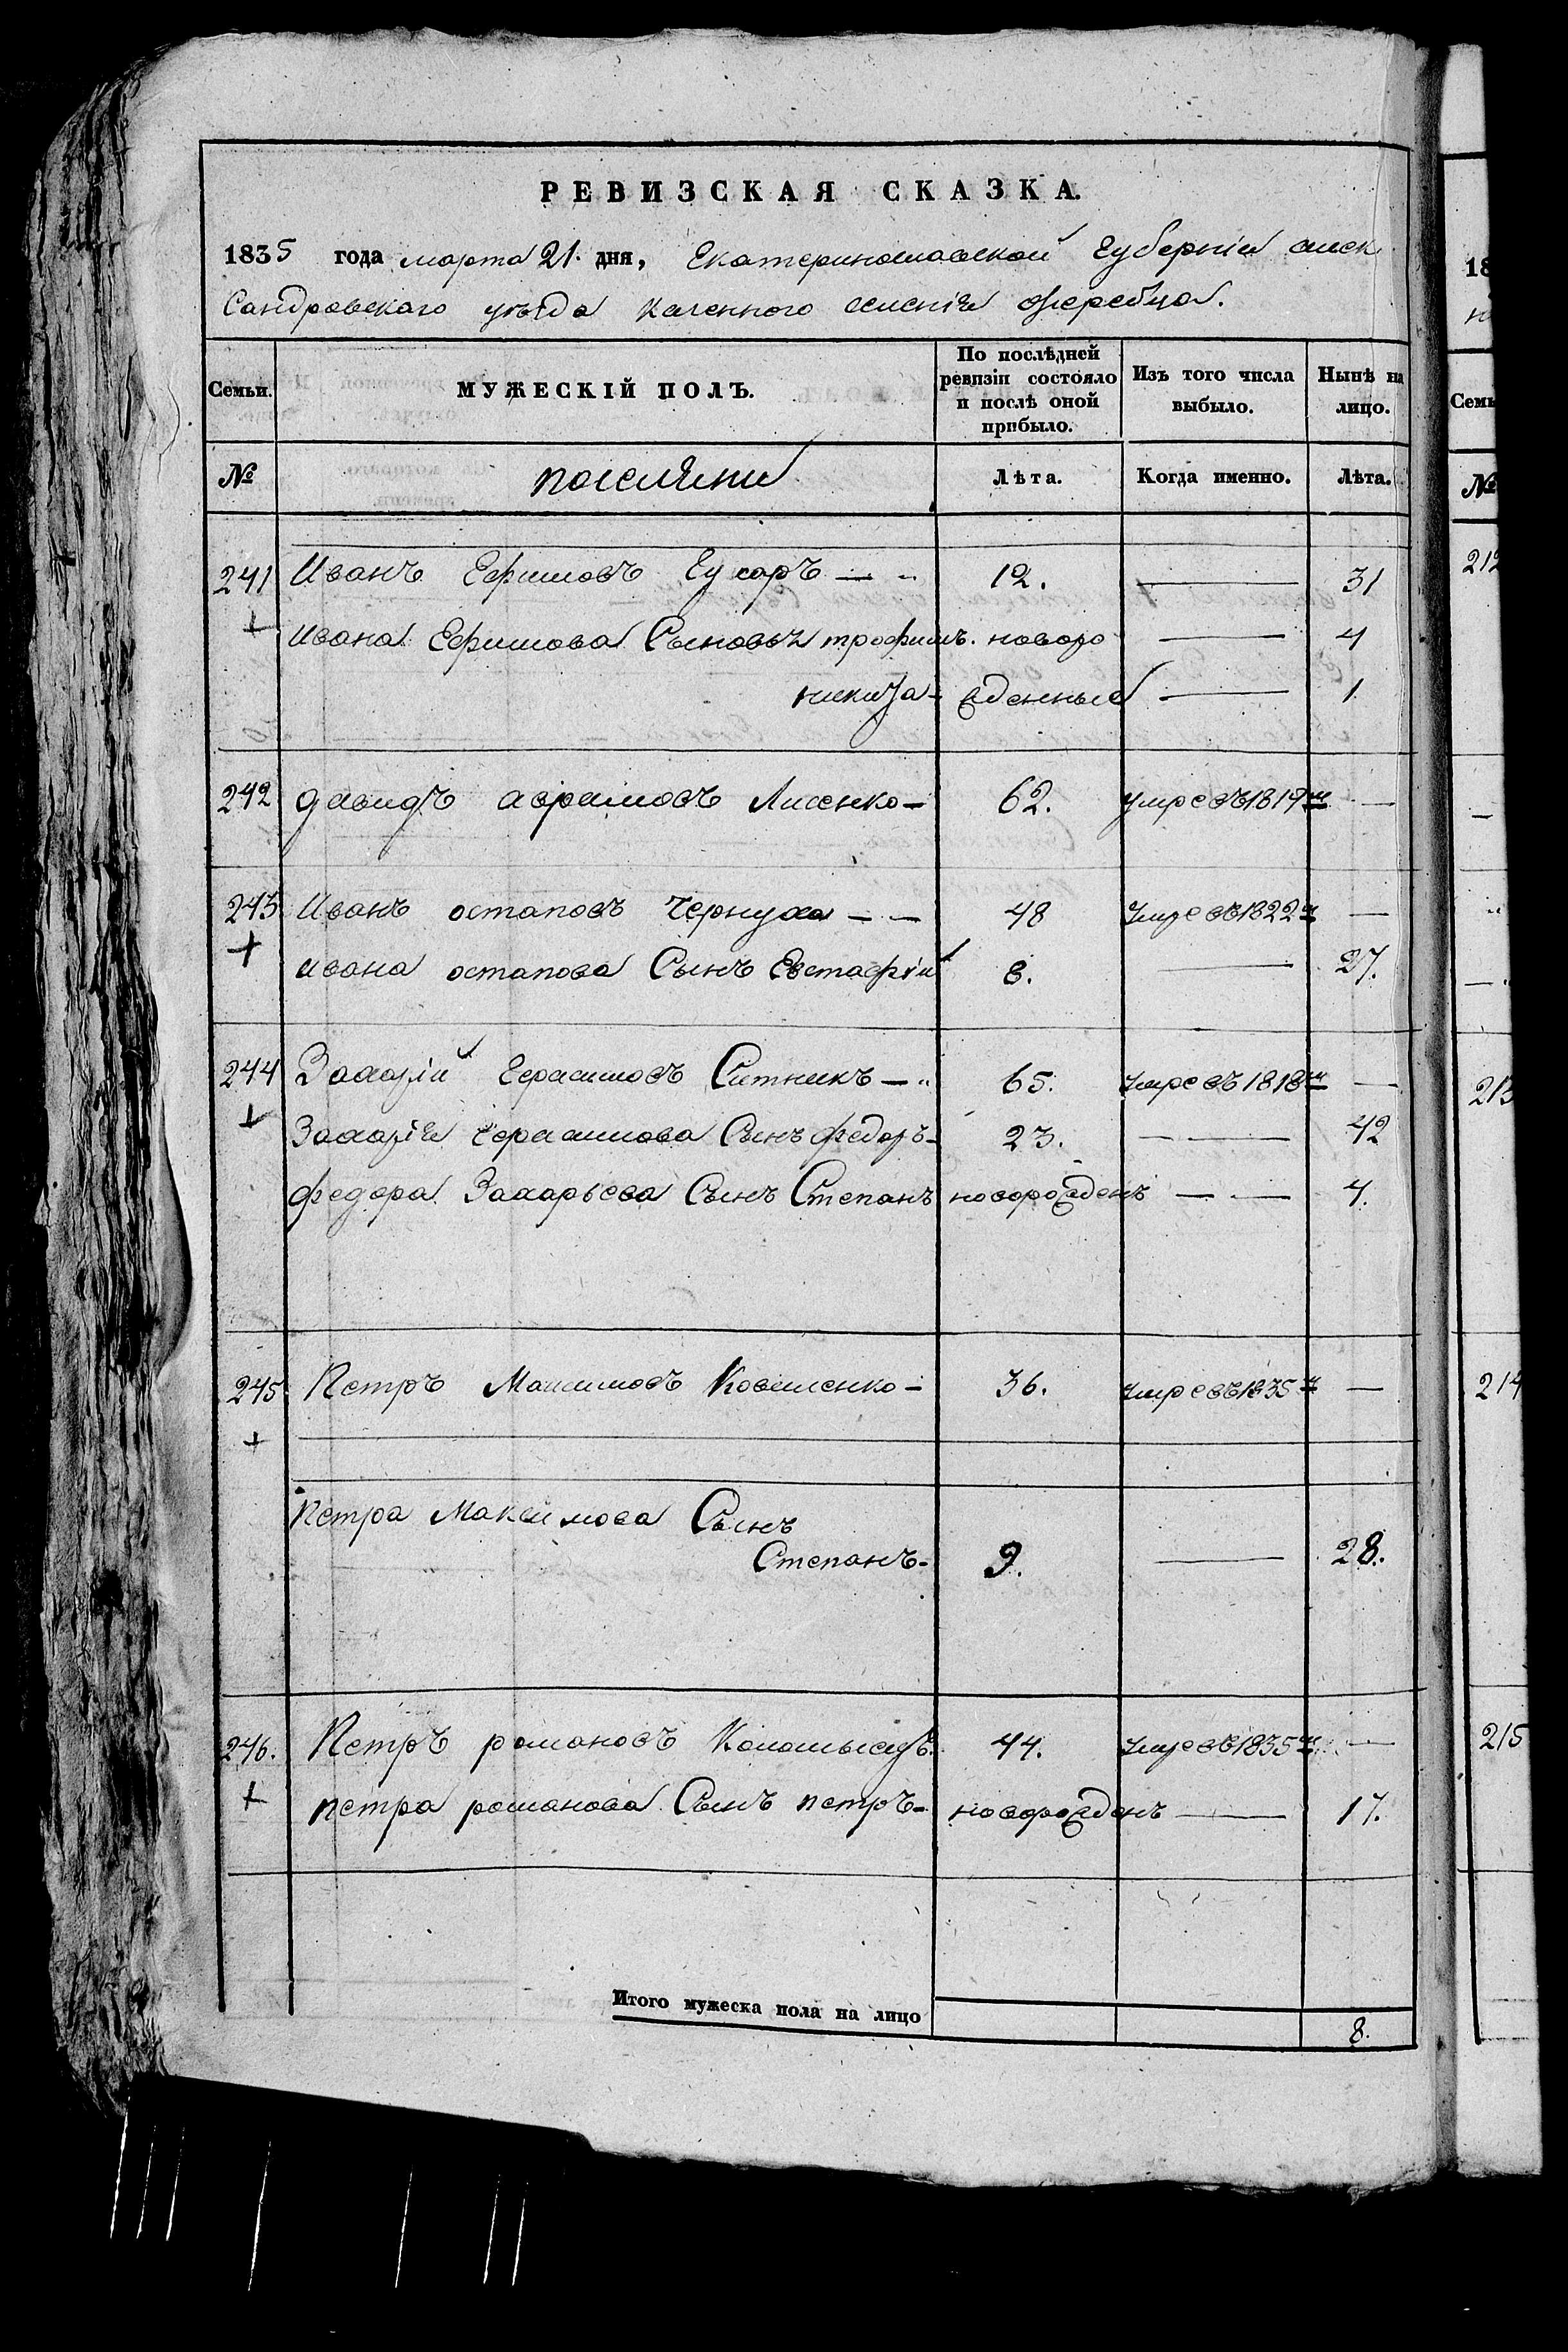 РЕВИЗСКАЯ СКАЗКА.
1835 года марта 21. дня, Екатеринославской Губерніи алек
сандровскаго уѣзда казенного селенія жеребца.
Семьи. МУЖЕСКІЙ ПОЛЪ. По послѣдней ревизіи состояло и послѣ оной прибыло. Изъ того числа выбыло. Нынѣ на лицо.
№ поселяне Лѣта. Когда именно. Лѣта.
241 Иванъ Ефимовъ 12. — 31
Ивана Ефимова Сыновья трофимъ. новоро — 4
никита - жденные — 1
242 давидъ аврамовъ Лисенко - 62. умре въ 1819м —
243 Иванъ остаповъ Чернуха - - 48 умре въ 1822м —
ивана остапова Сынъ Евстафій 8. — 27.
244 Захарій Герасимовъ Ситникъ - 65. умре въ 1818м —
Захарія Герасимова Сынъ федоръ - 23. — 42
федора Захарьева Сынъ Степанъ новорожденъ — 4.
245 Петръ Максимовъ 36. умре въ 1835м —
Петра Максимова Сынъ
Степанъ - 9. — 28.
246. Петръ романовъ 44. умре въ 1835м —
петра романова Сынъ петръ - новорожденъ — 17.
Итого мужеска пола на лицо 8.
18
Семь
№
212
213
214
215